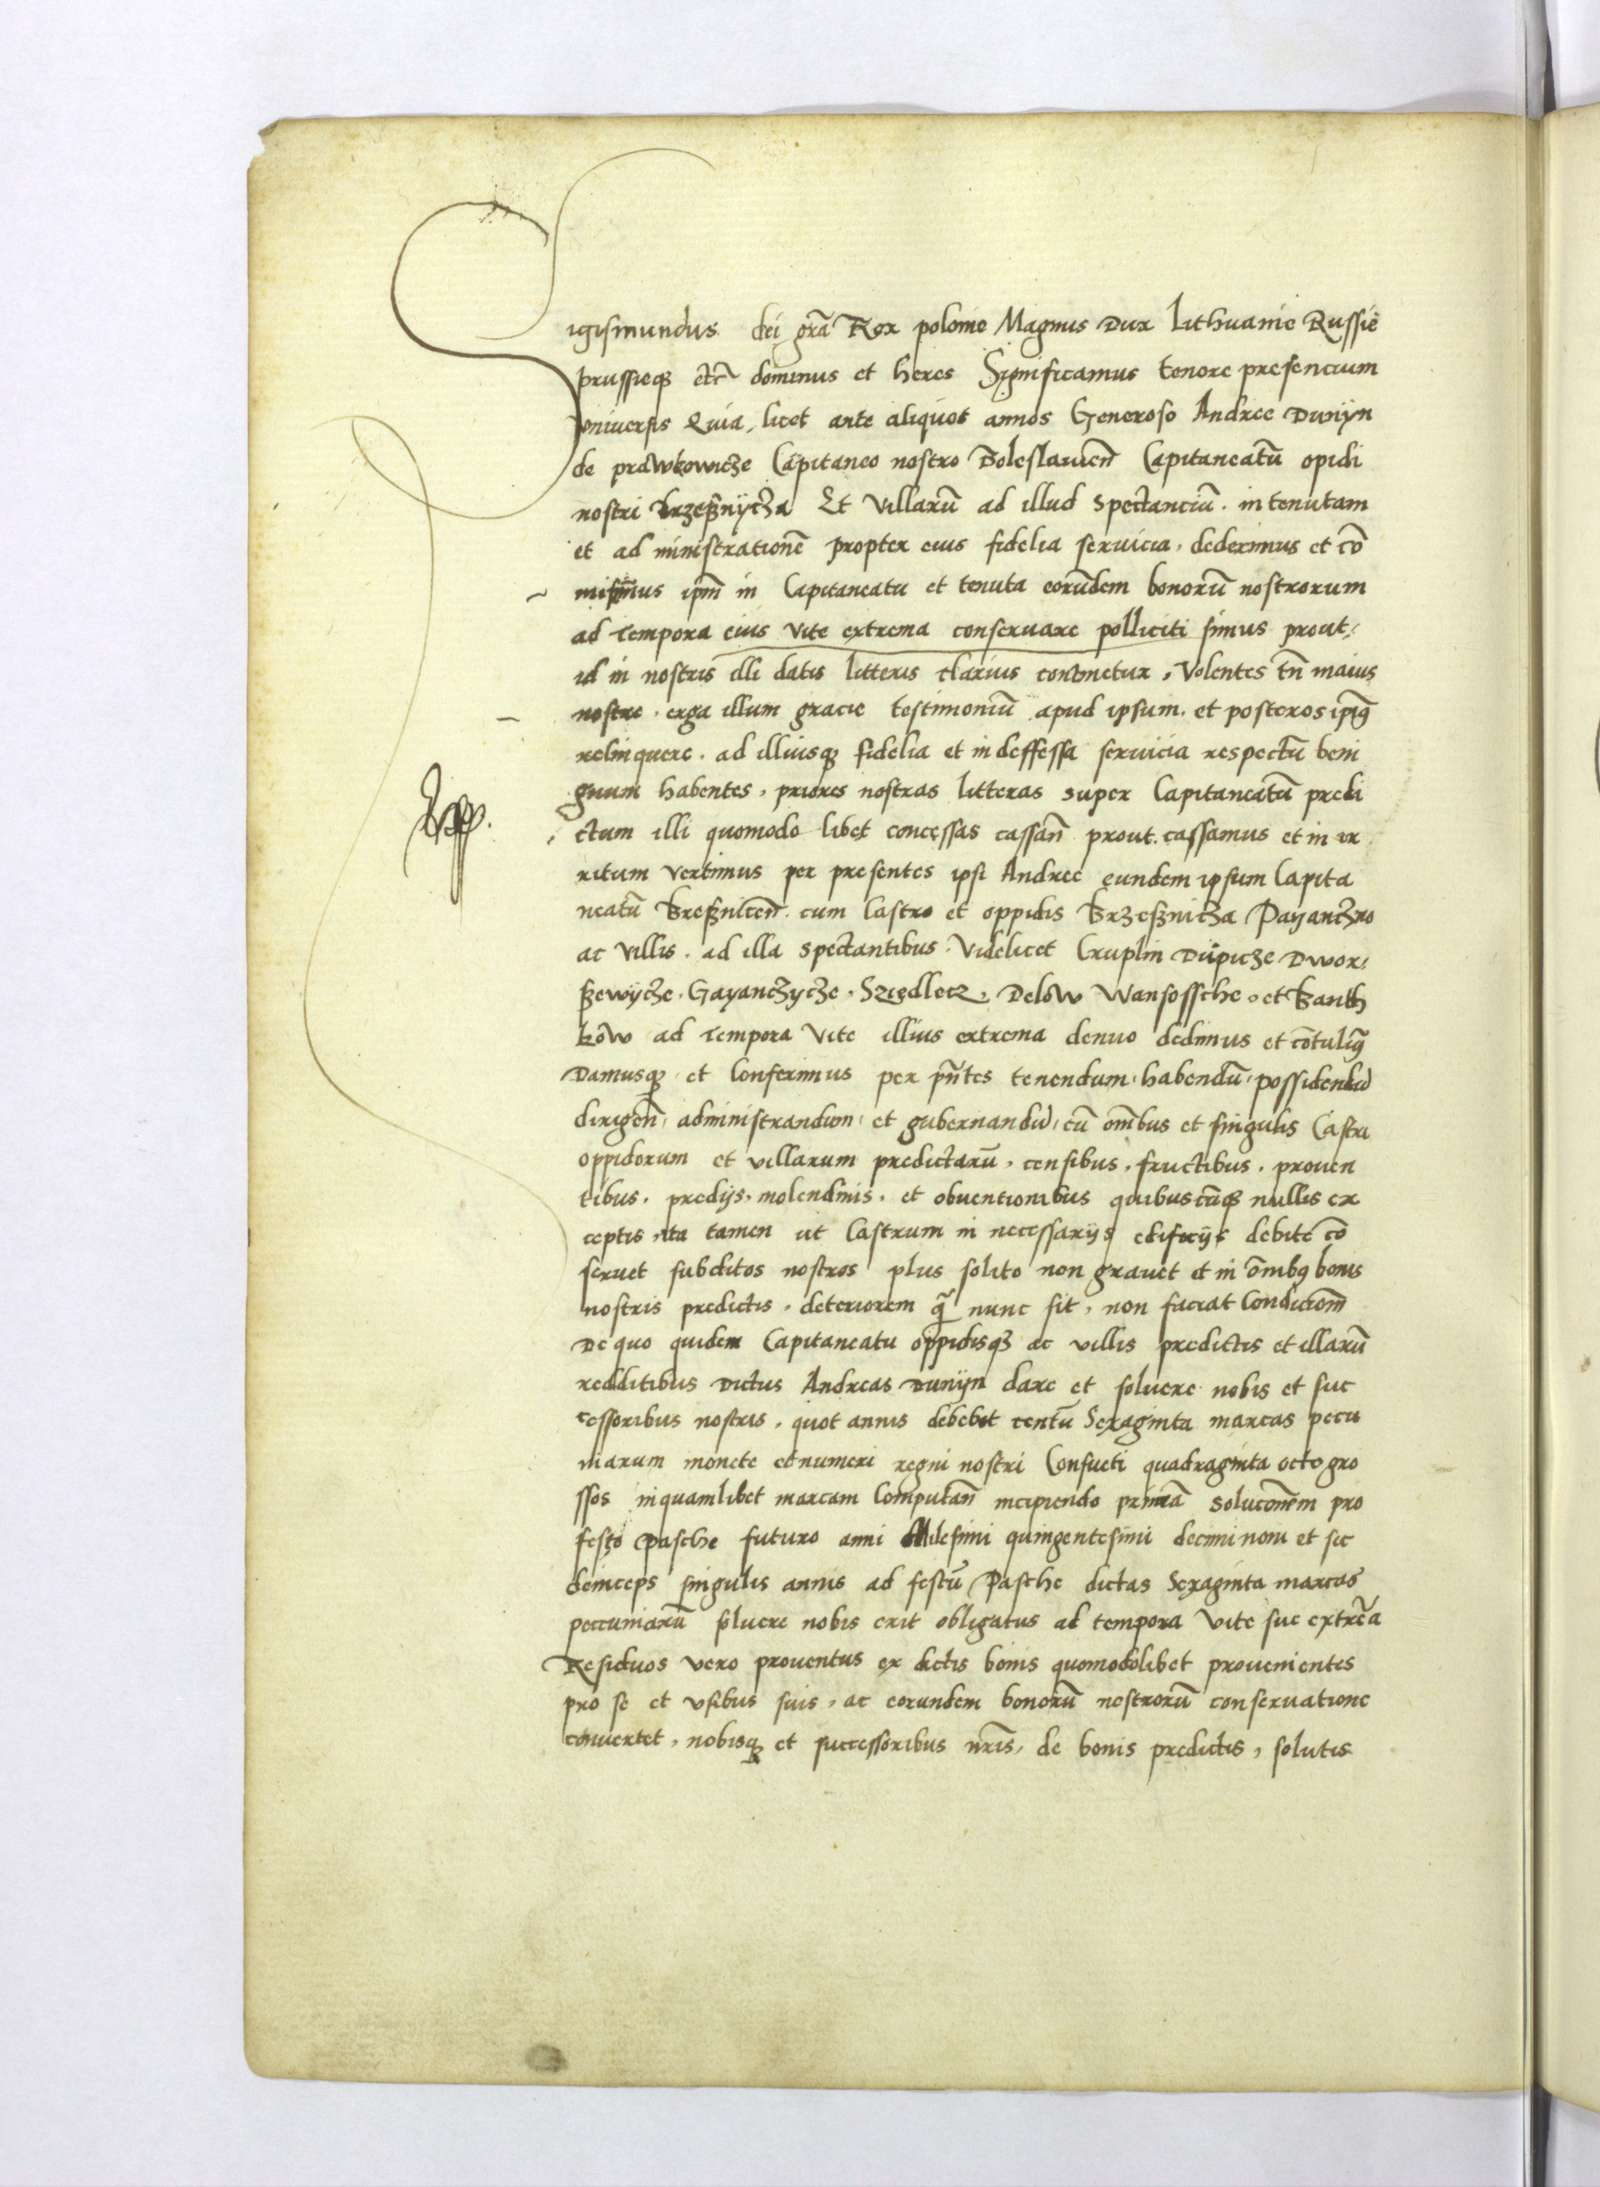 Sigismundus dei grã Rex polonie Magnus Dux Lithuanie Russie
prussieqz etc̃ dominus et heres Significamus tenore presencium
vniuersis Quia, licet ante aliquot annos Generoso Andree Dunÿn
de prawkowicze Capitaneo nostro Boleslauieñ Capitaneatũ opidi
nostri Brzesznÿcza Et Villarũ ad illud spectanciũ. in tenutam
et administrationẽ propter eius fidelia seruicia, dederimus et cõ
ipm̃ in Capitaneatu et tenuta eorũdem bonorũ nostrorum
ad tempora eius vite extrema conseruare polliciti simus prout
id in nostris illi datis litteris clarius continetur, Volentes tñ maius
nostre, erga illum gracie testimoniũ apud ipsum, et posteros ipius
relinquere. ad illiusqz fidelia et indeffessa seruicia respectũ beni
gnum habentes, priores nostras litteras super Capitaneatũ predi
ctum illi quomodolibet concessas cassañ prout cassamus et in ir
ritum vertimus per presentes ipsi Andree eundem ipsum Capita
neatũ Breszniceñ. cum Castro et oppidis Brzesznicza Payanczno
ac villis. ad illa spectantibus. Videlicet Cruplin Dupicze Dwor
szewÿcze. Gayanczycze. Szczedlecz, Delow Wansossche. et Banth
kow ad tempora vite illius extrema denuo dedimus et cõtulim9
Damusqz et Conferimus per pñtes tenendum, habendũ, possidendũ
dirigeñ, administrandum, et gubernandũ, cũ omñibus et singulis Castri
oppidorum et villarum predictarũ, censibus, fructibus, prouen
tibus, predijs, molendinis, et obuentionibus quibuscũqz nullis ex
ceptis, ita tamen ut Castrum in necessarijs edificijs debite cõ
seruet subditos nostros plus solito non grauet et in õmib9 bonis
nostris predictis, deteriorem q̃ nunc sit, non faciat Condicionẽ
De quo quidem Capitaneatu oppidisqz ac villis predictis et illarũ
redditibus Dictus Andreas Dunijn dare et soluere nobis et suc
cessoribus nostris, quot annis debebit centũ Sexaginta marcas pecu
niarum monete et numeri regni nostri Consueti quadraginta octo gro
ssos in quamlibet marcam Computañ incipiendo primã solucionẽm pro
festo Pasche futuro anni Milesimi quingentesimi decimi noni et sic
deinceps singulis annis ad festũ Pasche dictas Sexaginta marcas
peccuniarũ soluere nobis erit obligatus ad tempora vite sue extrẽa
Residuos vero prouentus ex dictis bonis quomodolibet prouenientes
pro se et vsibus suis, ac eorundem bonorũ nostrorũ conseruatione
conuertet, nobisqz et successoribus nr̃is, de bonis predictis, solutis